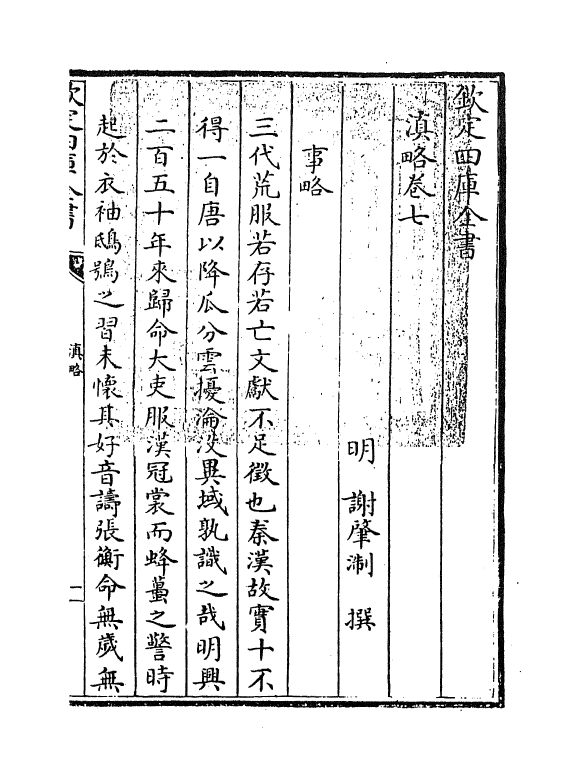 欽定四庫全書
滇略卷七
明 謝肇淛 撰
事略
三代荒服若存若亡文獻不足徵也秦漢故實十不
得一自唐以降瓜分雲擾淪没異域孰識之哉明興
二百五十年來歸命大吏服漢冠裳而蜂蠆之警時
起於衣袖鴟鴞之習未懷其好音譸張衡命無歲無
欽定四庫全書
滇略
一